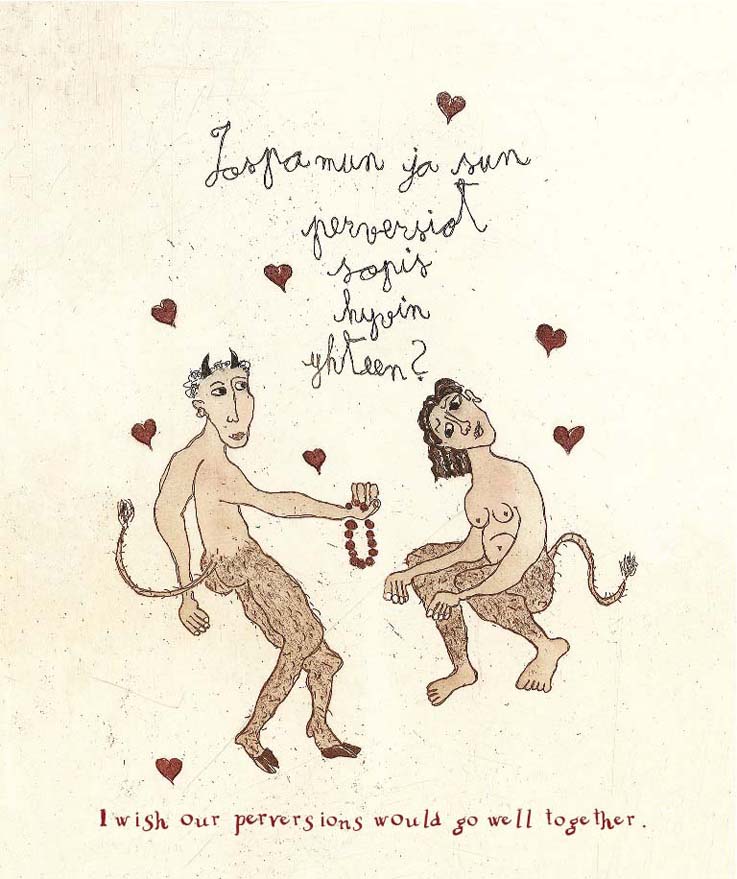 Jospa mun ja sun
perversiot
sopis
hyvin
yhteen?
I wish our perversions would go well together.